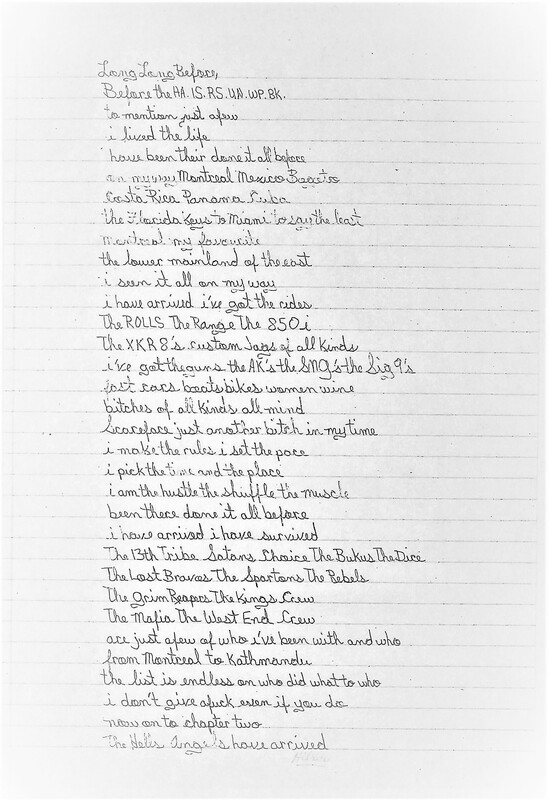 Long Long Before,
Before the AA. IS. RS. UN. WP. BK.
to mention just afew
i lived the life
have been their done it all before
on my way Montreal Mexico Bogoto
Costa Rica Panama Cuba
the Florida Keys to Miami to say the least
montreal my favourite
the lower mainland of the east
i seen it all on my way
i have arrived i've got the rides
The ROLLS The Range The 850i
The XKR8's custom Jags of all kinds
i've got the guns the AK's the SMG's the Sig 9's
fast cars boats bikes women wine
bitches of all kinds all mind
Scareface just another bitch in my time
i make the rules i set the pace
i pick the time and the place
i am the hustle the shuffle the muscle
been there done it all before
i have arrived i have survived
The 13th Tribe Satans Choice The Bukus The Dice
The Lost Bravos The Spartons The Rebels
The Grim Reapers The Kings Crew
The Mafia The West End Crew
are just afew of who i've been with and who
from Montreal to Kathmandu
the list is endless on who did what to who
i don't give afuck even if you do
now on to chapter two...
The Hells Angels have arrived